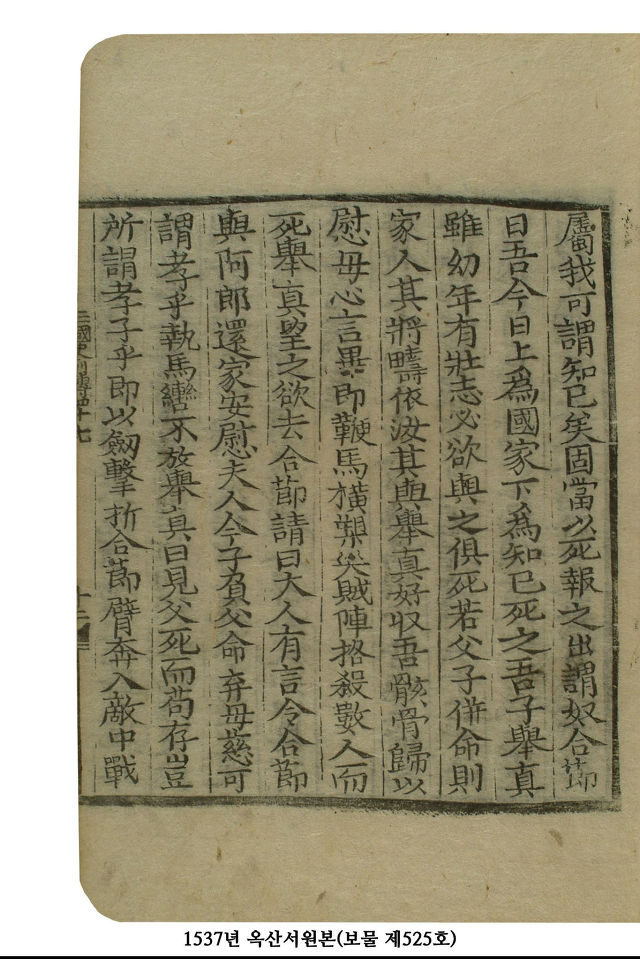 屬我可謂知已矣固當以死報之出謂奴合節
曰吾今日上爲國家下爲知已死之吾子舉真
雖幼年有壯志必欲與之俱死若父子併命則
家人其將疇依汝其與舉真好収吾骸骨歸以
慰母心言畢即鞭馬橫槊突賊陣挌殺數人而
死舉真望之欲去合節請曰大人有言令合節
與阿郎還家安慰夫人今子負父命弃母慈可
謂孝乎執馬轡不放舉真曰見父死而苟存豈
所謂孝子乎即以劒擊折合節臂奔入敵中戰
三國史列傳四十七
十二
1537년 옥산서원본(보물 제525호)